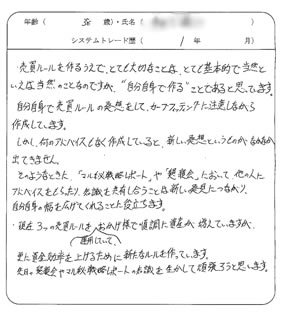 年齢( 歳)・氏名( )
システムトレード歴( 1年 月)
売買ルールを作るうえで、とても大切なことは、とても基本的で当然と
いえば当然のことなのですが、"自分自身で作る"ことであると思ってます。
自分自身で売買ルールの発想をして、カーブフィッティングに注意しながら
作成しています。
しかし、何のアドバイスもなく作成していると、新しい発想というものがなかなか
出てきません。
そのようなときに、「マル秘戦略レポート」や「懇親会」において他の人に
アドバイスをもらったり、知識を共有し合うことは新しい発見につながり、
自分自身の幅を広げてくれることに役立ちます。
現在 3つの売買ルールを おかげ様で順調に資産が増えていますが、
運用していて、
更に資金効率を上げるために新たなルールを作っています。
先日の懇親会やマル秘戦略レポートの知識を生かして頑張ろうと思います。